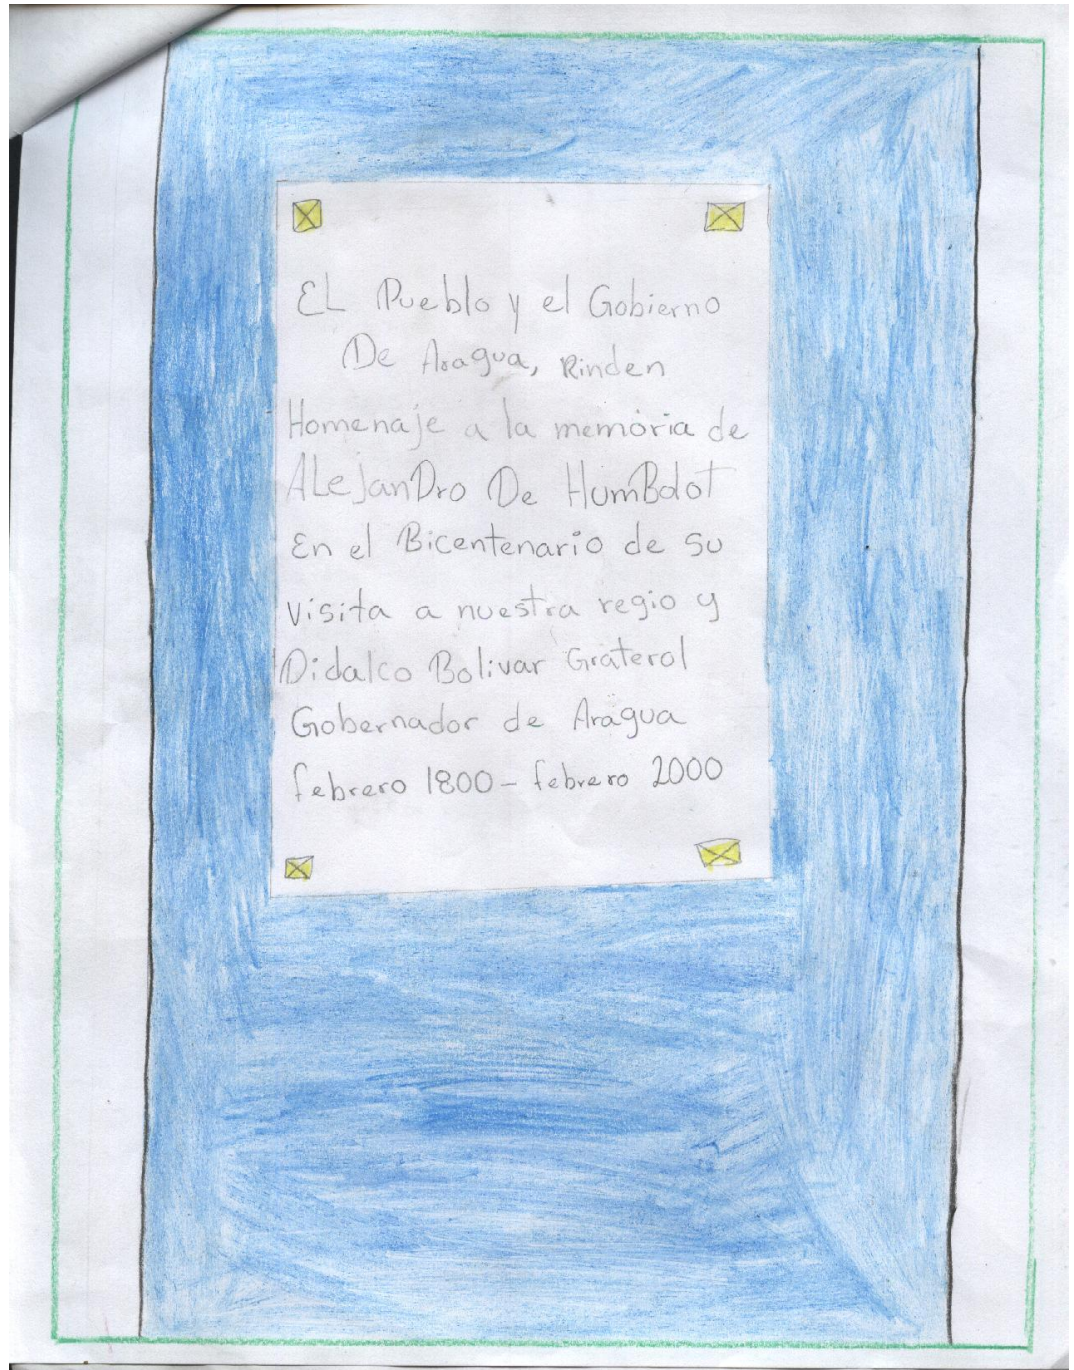 EL Pueblo y el Gobierno
De Aragua, Rinden
Homenaje a la memoria de
ALeJanDro De HumBdot
En el Bicentenario de su
visita a nuestra regio y
Didalco Bolivar Graterol
Gobernador de Aragua
febrero 1800 - febrero 2000